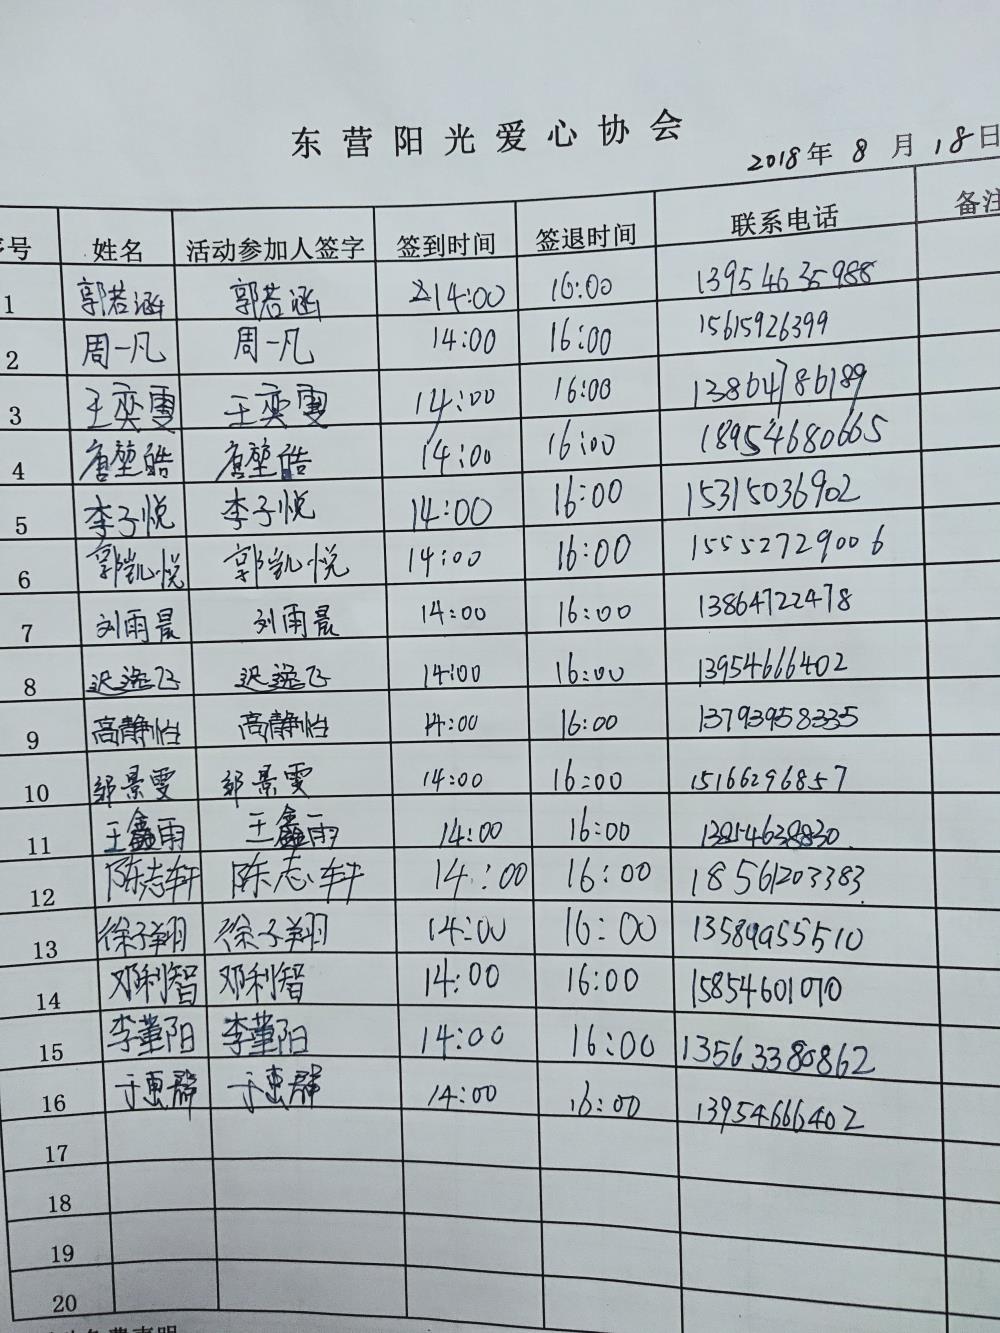 东营阳光爱心协会
2018年 8 月 18日
序号 姓名 活动参加人签字 签到时间 签退时间 联系电话 备注
1 郭若涵 郭若涵 14:00 16:00 13954635988
2 周一凡 周一凡 14:00 16:00 15615926399
3 王奕雯 王奕雯 14:00 16:00 13864786189
4 唐堃皓 唐堃皓 14:00 16:00 18954680665
5 李子悦 李子悦 14:00 16:00 15315036902
6 郭凯悦 郭凯悦 14:00 16:00 15552729006
7 刘雨晨 刘雨晨 14:00 16:00 13864722478
8 迟逸飞 迟逸飞 14:00 16:00 13954666402
9 高静怡 高静怡 14:00 16:00 13793958335
10 郭景雯 郭景雯 14:00 16:00 15166296857
11 王鑫雨 王鑫雨 14:00 16:00 13954638830
12 陈志轩 陈志轩 14:00 16:00 18561203383
13 徐子翔 徐子翔 14:00 16:00 13589955510
14 邓利智 邓利智 14:00 16:00 15854601070
15 李堇阳 李堇阳 14:00 16:00 13563380862
16 于惠群 于惠群 14:00 16:00 13954666402
17
18
19
20